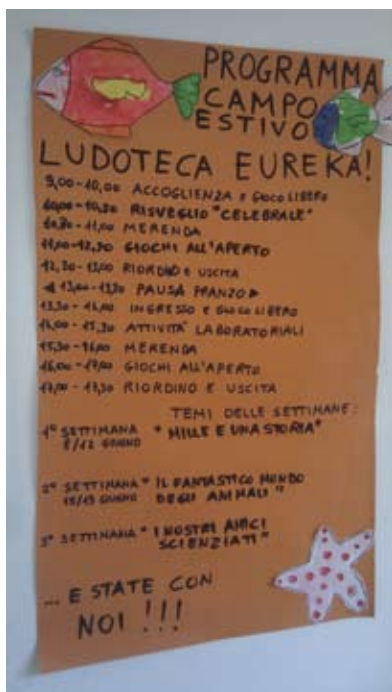 PROGRAMMA
CAMPO
ESTIVO
LUDOTECA EUREKA!
9,00-10,00 ACCOGLIENZA E GIOCO LIBERO
10,00-10,30 RISVEGLIO "CELEBRALE"
10,30-11,00 MERENDA
11,00-12,30 GIOCHI ALL'APERTO
12,30-13,00 RIORDINO E USCITA
13,00-13,30 PAUSA PRANZO
13,30-14,00 INGRESSO E GIOCO LIBERO
14,00-15,30 ATTIVITÀ LABORATORIALI
15,30-16,00 MERENDA
16,00-17,00 GIOCHI ALL'APERTO
17,00-17,30 RIORDINO E USCITA
TEMI DELLE SETTIMANE:
1° SETTIMANA "MILLE E UNA STORIA"
8/12 GIUGNO
2° SETTIMANA "IL FANTASTICO MONDO
15/19 GIUGNO DEGLI ANIMALI"
3° SETTIMANA "I NOSTRI AMICI
SCIENZIATI"
... E STATE CON
NOI!!!